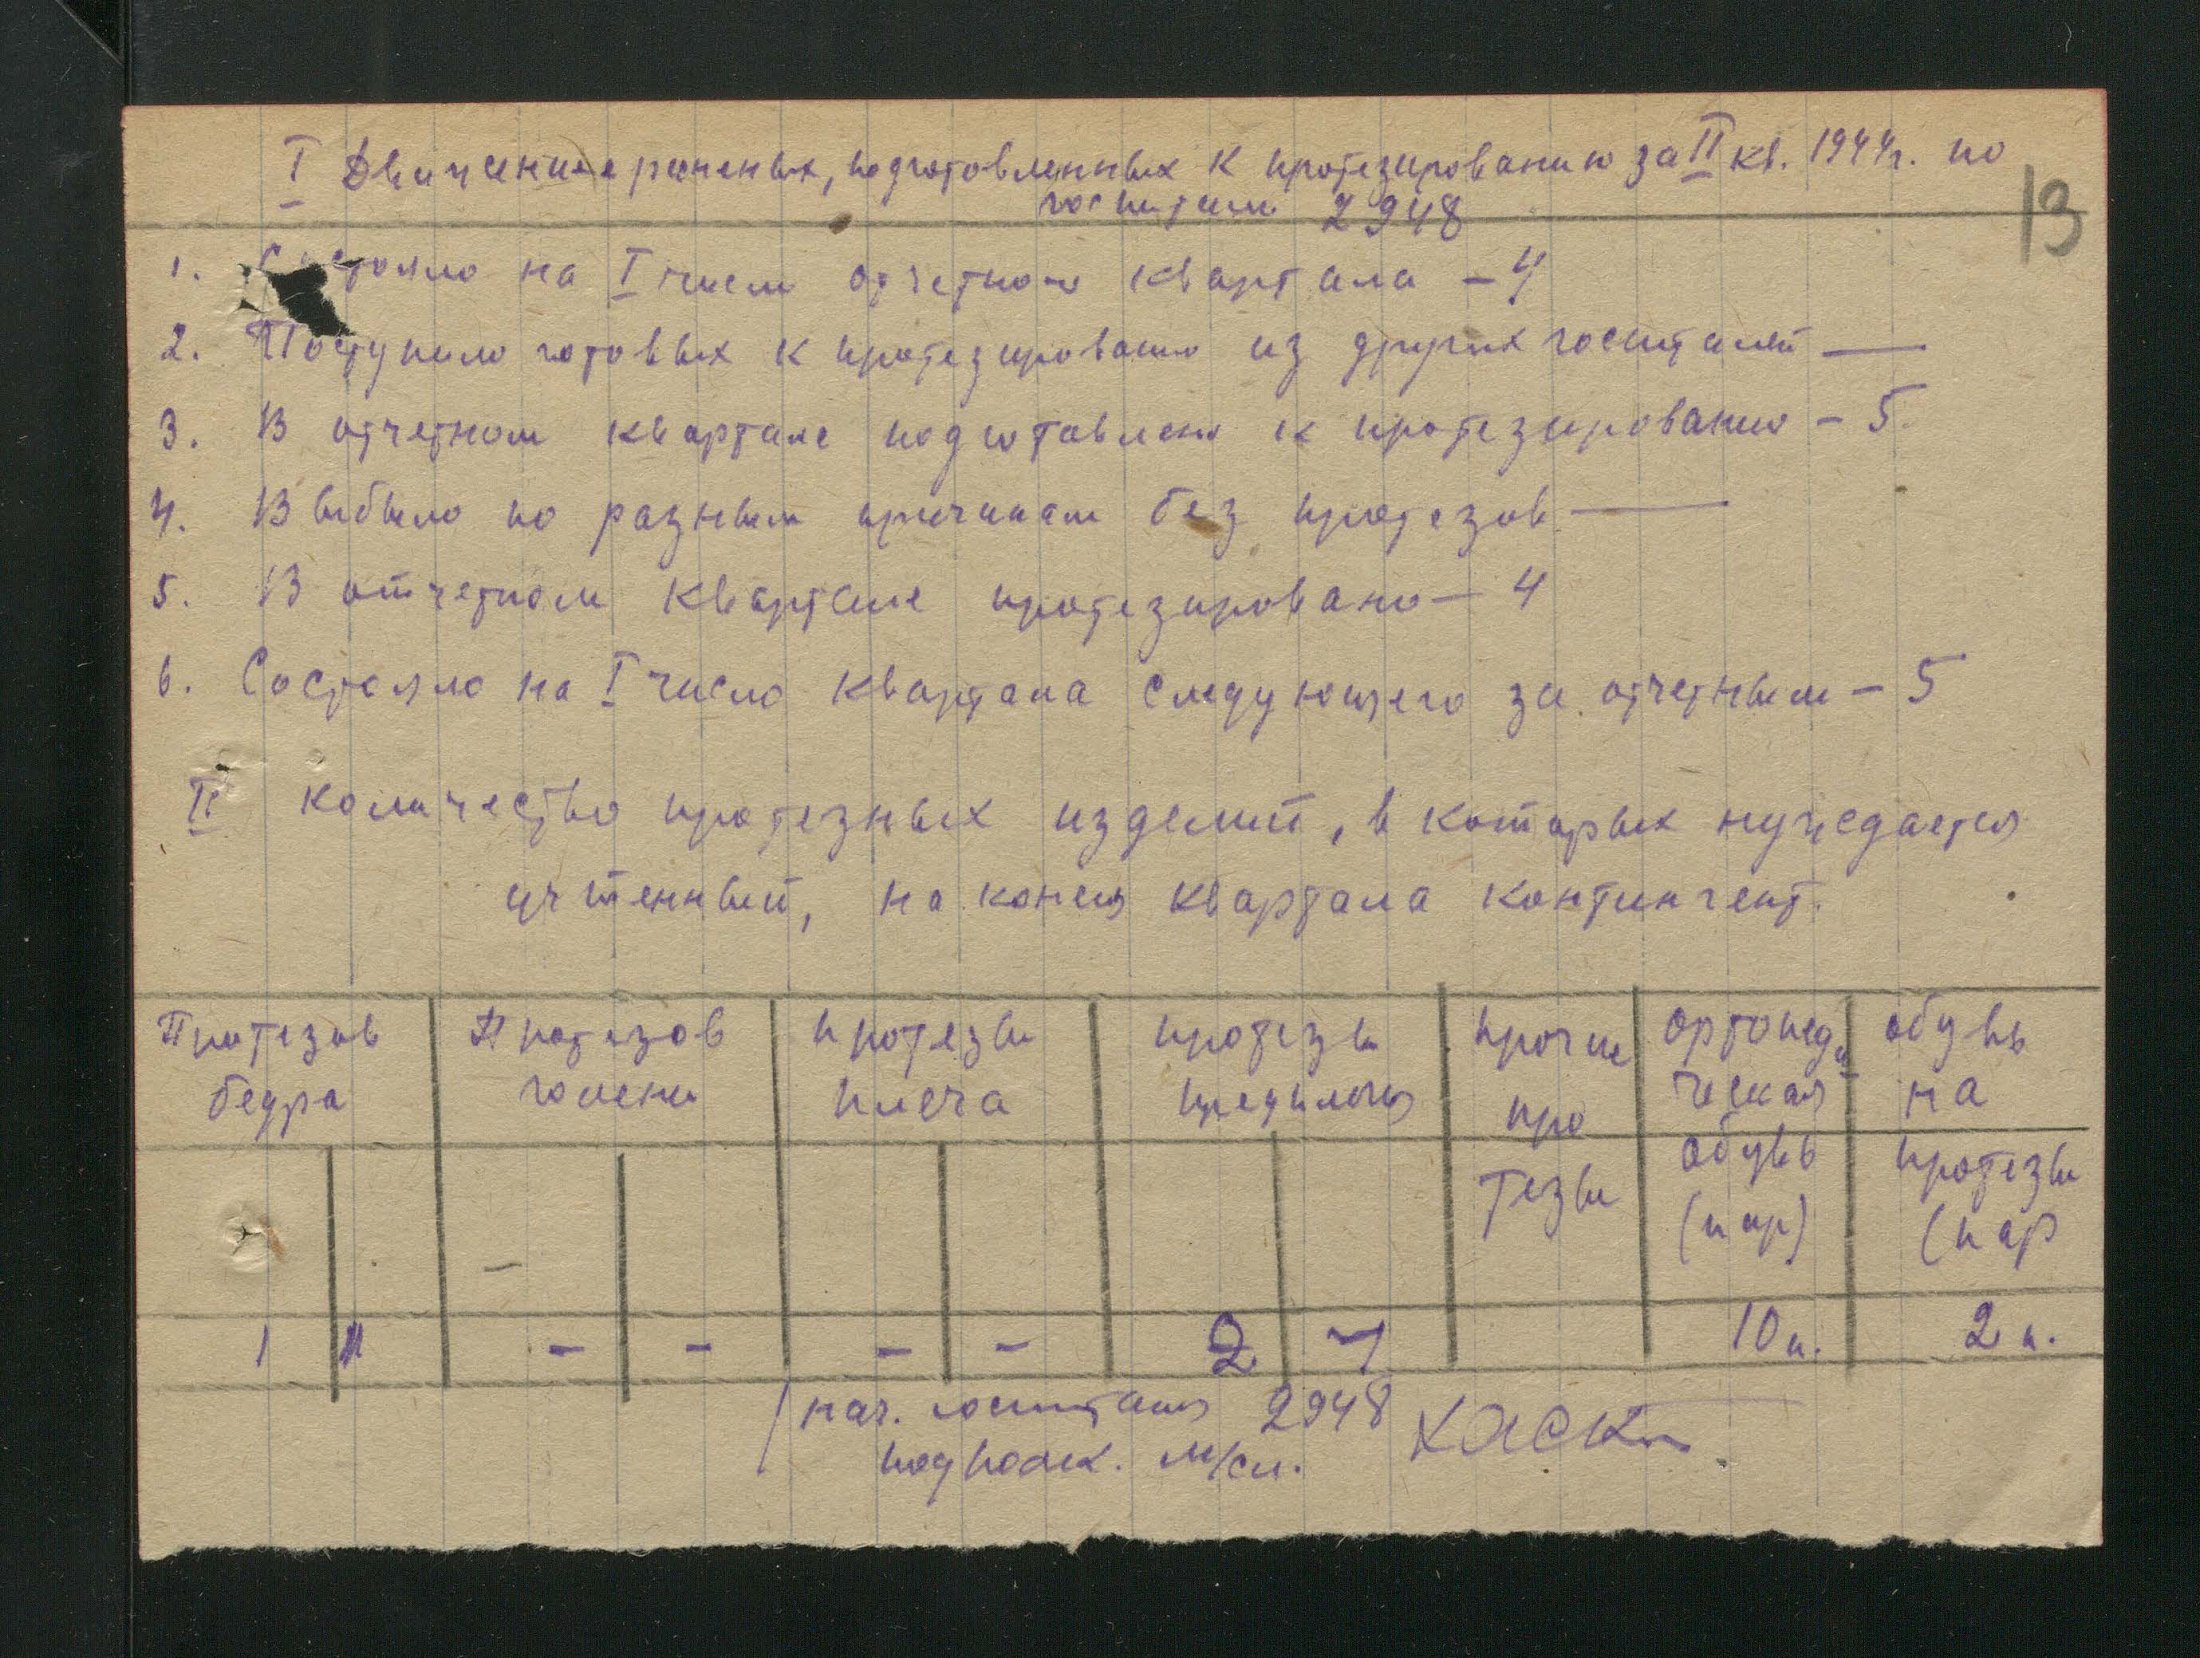 I Движение раненых, подготовленных к протезированию за II кв. 1944г. по
госпиталю 2948
13
1. Состояло на I число отчетного квартала – 4
2. Поступило готовых к протезированию из других госпиталей —
3. В отчетном квартале подготовлено к протезированию – 5
4. Выбыло по разным причинам без протезов —
5. В отчетном квартале протезировано – 4
6. Состояло на I число квартала следующего за отчетным – 5
II Количество протезных изделий, в которых нуждается
учтенный, на конец квартала контингент.
Протезов бедра
Протезов голени
протезы плеча
протезы предплечья
прочие протезы
ортопедическая обувь (пар)
обувь на протезы (пар
–
1 " – – – – 2 10 п. 2 п.
нач. госпиталя 2948
подполк. м/сл.